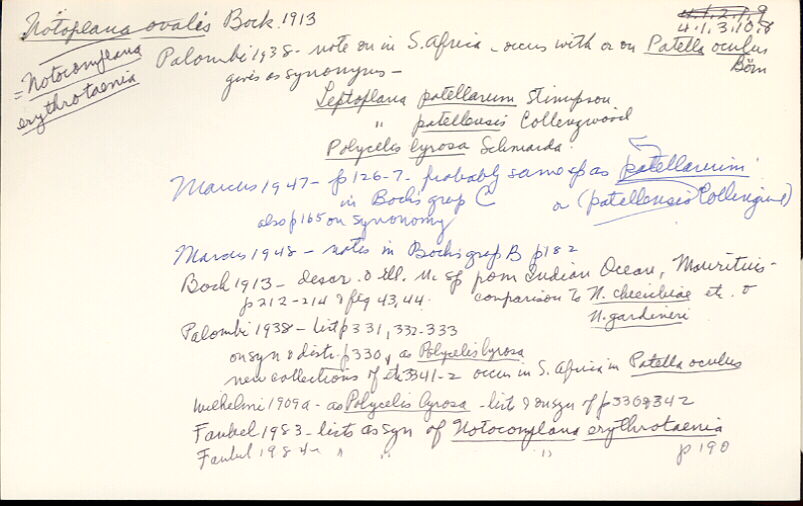 Notoplana ovalis Bock 1913
4.1.2.1.9
4.1.3.10.8
= Notocomplana erythrotaenia
Palombi 1938 - note on in S. Africa - occurs with or on Patella oculus Börn
gives as synonyms -
Leptoplana patellarum Stimpson
" patellensis Collingwood
Polycelis lyrosa Schmarda.
Marcus 1947 - p 126-7 - probably same sp as patellarum
in Bock's group C or (patellensis Collingwood)
also p 165 on synonomy
Marcus 1948 - notes in Bock's group B p 182
Bock 1913 - descr. & ill. n. sp from Indian Ocean, Mauritius -
p 212-214 & fig 43, 44. comparison to N. cheirchiae etc. &
N. gardineri
Palombi 1938 - list p 331, 332-333
on syn & distr. p 330, as Polycelis lyrosa
new collections of etc 3341-2 occur in S. Africa in Patella oculus
Wilhelmi 1909a - as Polycelis lyrosa - list & on syn of p 330 & 342
Faubel 1983 - lists as syn of Notocomplana erythrotaenia
Faubel 1984 " " " p 190